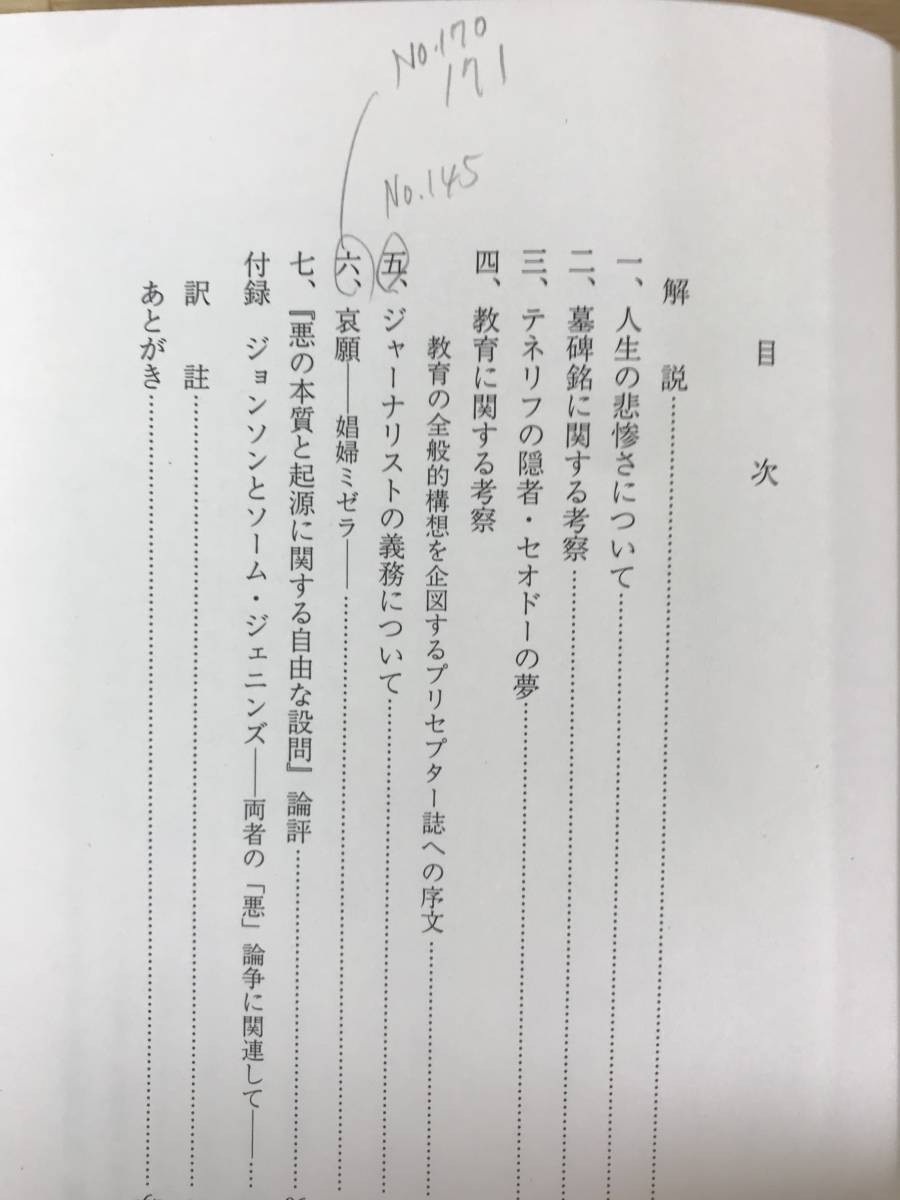 No.170
171
No.145
目次
解説
一、人生の悲惨さについて
二、墓碑銘に関する考察
三、テネリフの隠者・セオドーの夢
四、教育に関する考察
教育の全般的構想を企図するプリセプター誌への序文
五、ジャーナリストの義務について
六、哀願――娼婦ミゼラ――
七、『悪の本質と起源に関する自由な設問』論評
付録 ジョンソンとソーム・ジェニンズ――両者の「悪」論争に関連して――
訳註
あとがき